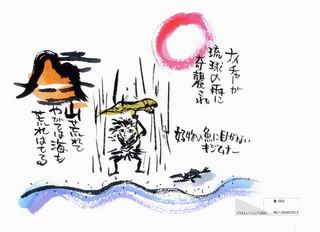 ナイチャーが
琉球の雨に
奇襲され
好物の魚に目がない
キジムナー
山荒れて
やがては海も
荒れはてる